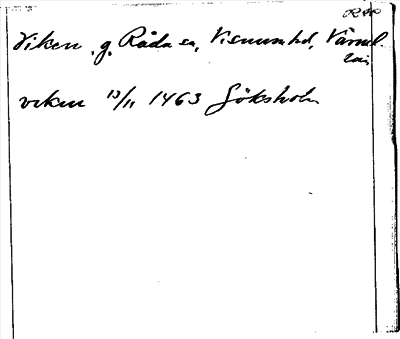 Viken . g. Råda sn, Visnums hd, Värml.
län
viken 13/11 1463 Göksholm